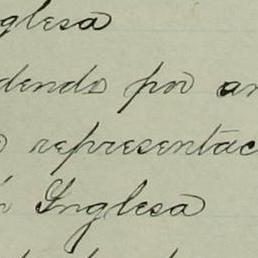 glesa
dendo por an
representac
n Inglesa